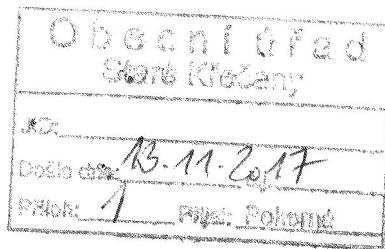 Obecní úřad
Staré Křečany
Došlo dne: 13.11.2017
Příloh: 1 Přijal: Pokorná